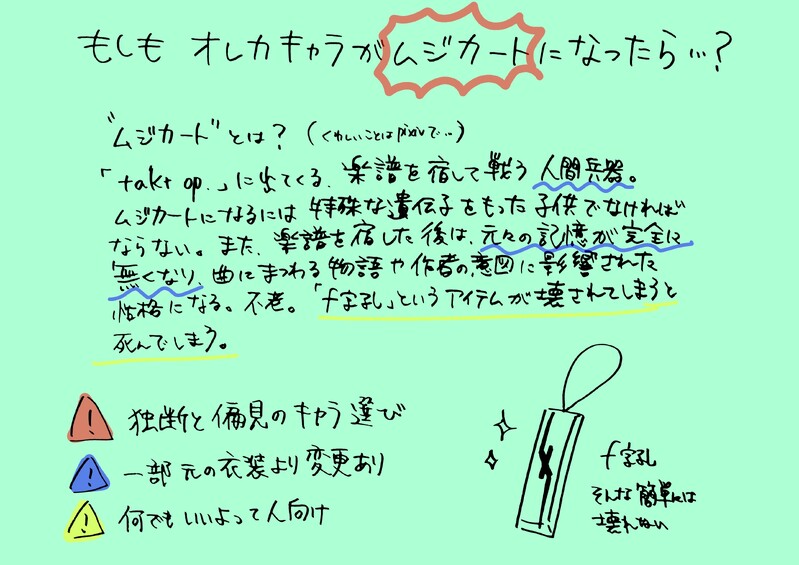 もしも オレカキャラがムジカートになったら…?
"ムジカート"とは?(くわしいことはpixivで…)
「takt op.」に出てくる、楽譜を宿して戦う 人間兵器。
ムジカートになるには 特殊な遺伝子をもった子供でなければ
ならない。また、楽譜を宿した後は、元々の記憶が完全に
無くなり、曲にまつわる物語や作者の意図に影響された
性格になる。不老。「f字孔」というアイテムが壊されてしまうと
死んでしまう。
! 独断と偏見のキャラ選び
! 一部元の衣装より変更あり
! 何でもいいよって人向け
f字孔
そんな簡単には
壊れない